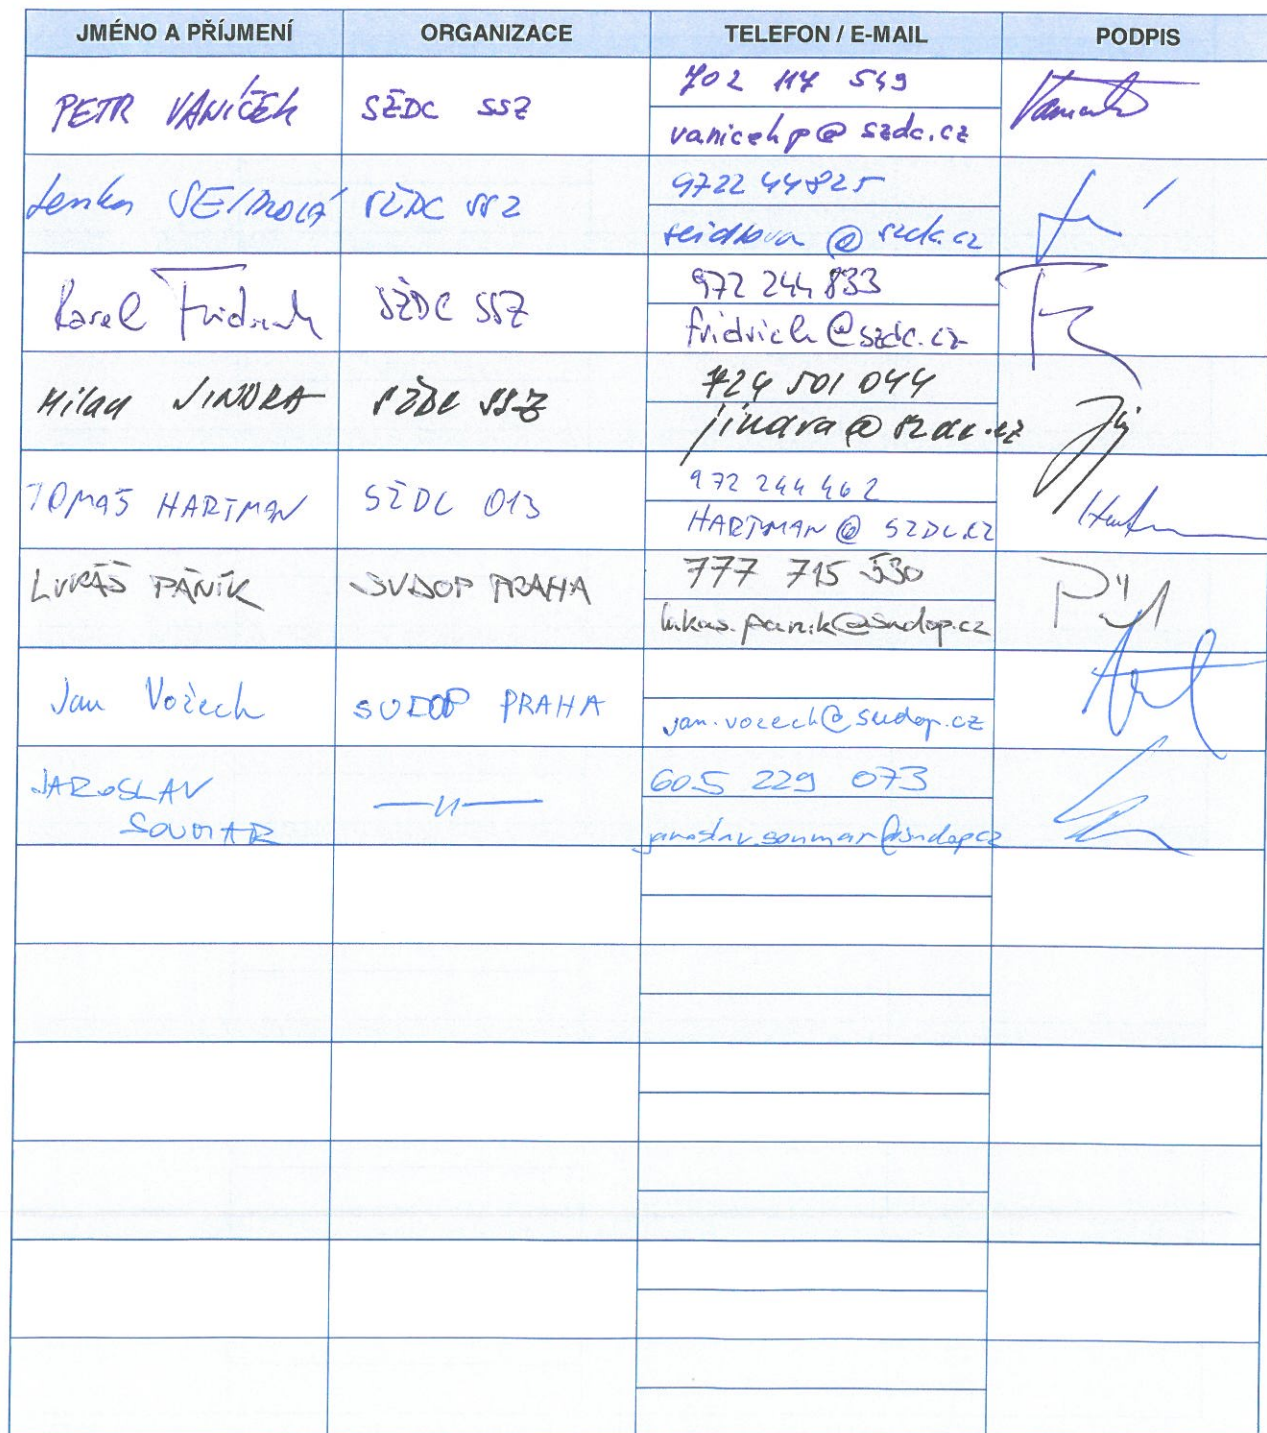 JMÉNO A PŘÍJMENÍ ORGANIZACE TELEFON / E-MAIL PODPIS
PETR VANÍČEK SŽDC SSZ 702 117 549
vanicekp@szdc.cz
Lenka SEIDLOVÁ SŽDC SSZ 972244825
seidlova@szdc.cz
Karel Fridrich SŽDC SSZ 972 244 833
fridrich@szdc.cz
Milan JINDRA SŽDC SSZ 724 501 044
jindra@szdc.cz
TOMÁŠ HARTMAN SŽDC 013 972 244 462
HARTMAN@SZDC.CZ
LUKÁŠ PÁNIK SUDOP PRAHA 777 715 530
lukas.panik@sudop.cz
Jan Vožech SUDOP PRAHA
jan.vozech@sudop.cz
JAROSLAV —〃— 605 229 073
SOUMAR jaroslav.soumar@sudop.cz